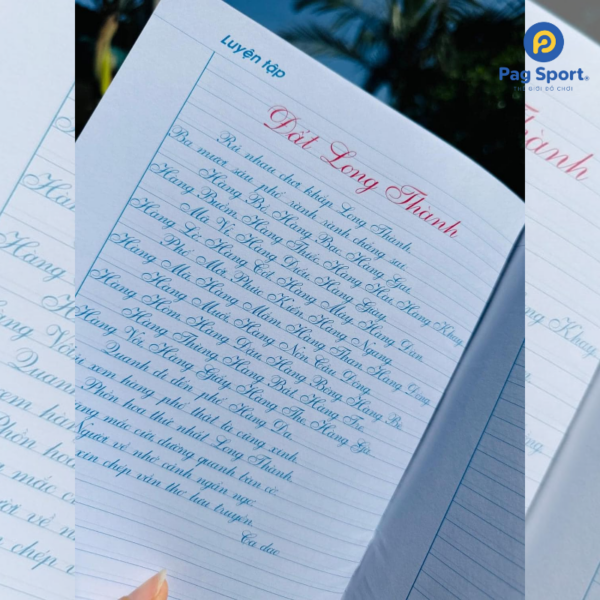 Pag Sport®
THẾ GIỚI ĐỒ CHƠI
Luyện tập
Đất Long Thành
Rủ nhau chơi khắp Long Thành
Ba mươi sáu phố rành rành chẳng sai
Hàng Bồ, Hàng Bạc, Hàng Gai,
Hàng Buồm, Hàng Thiếc, Hàng Hài, Hàng Khay,
Mã Vĩ, Hàng Điếu, Hàng Giày
Hàng Lờ, Hàng Cót, Hàng Mây, Hàng Đàn,
Phố Mới, Phúc Kiến, Hàng Ngang,
Hàng Mã, Hàng Mắm, Hàng Than, Hàng Đồng,
Hàng Muối, Hàng Nón, Cầu Đông,
Hàng Hòm, Hàng Đậu, Hàng Bông, Hàng Bè,
Hàng Thùng, Hàng Bát, Hàng Tre,
Hàng Vôi, Hàng Giấy, Hàng The, Hàng Gà,
Quanh đi đến phố Hàng Da,
xem hàng phố thật là cũng xinh.
Phồn hoa thứ nhất Long Thành,
mắc cửi đường quanh bàn cờ.
Người về nhớ cảnh ngẩn ngơ,
xin chép vần thơ lưu truyền.
Ca dao